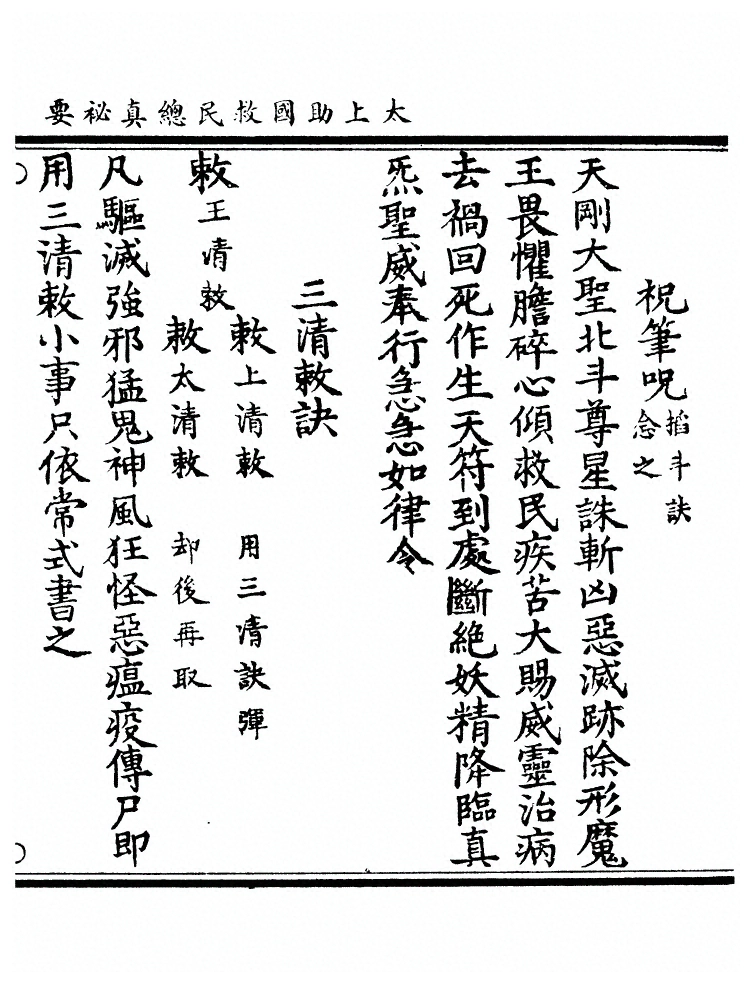 太上助國救民總真祕要
祝筆呪掐斗訣念之
天剛大聖北斗尊星誅斬凶惡滅跡除形魔
王畏懼膽碎心傾救民疾苦大賜威靈治病
去禍回死作生天符到處斷絕妖精降臨真
炁聖威奉行急急如律令
三清敕訣
敕上清敕 用三清訣彈
敕王清敕
敕太清敕 却後再取
凡驅滅強邪猛鬼神風狂怪惡瘟疫傳尸即
用三清敕小事只依常式書之